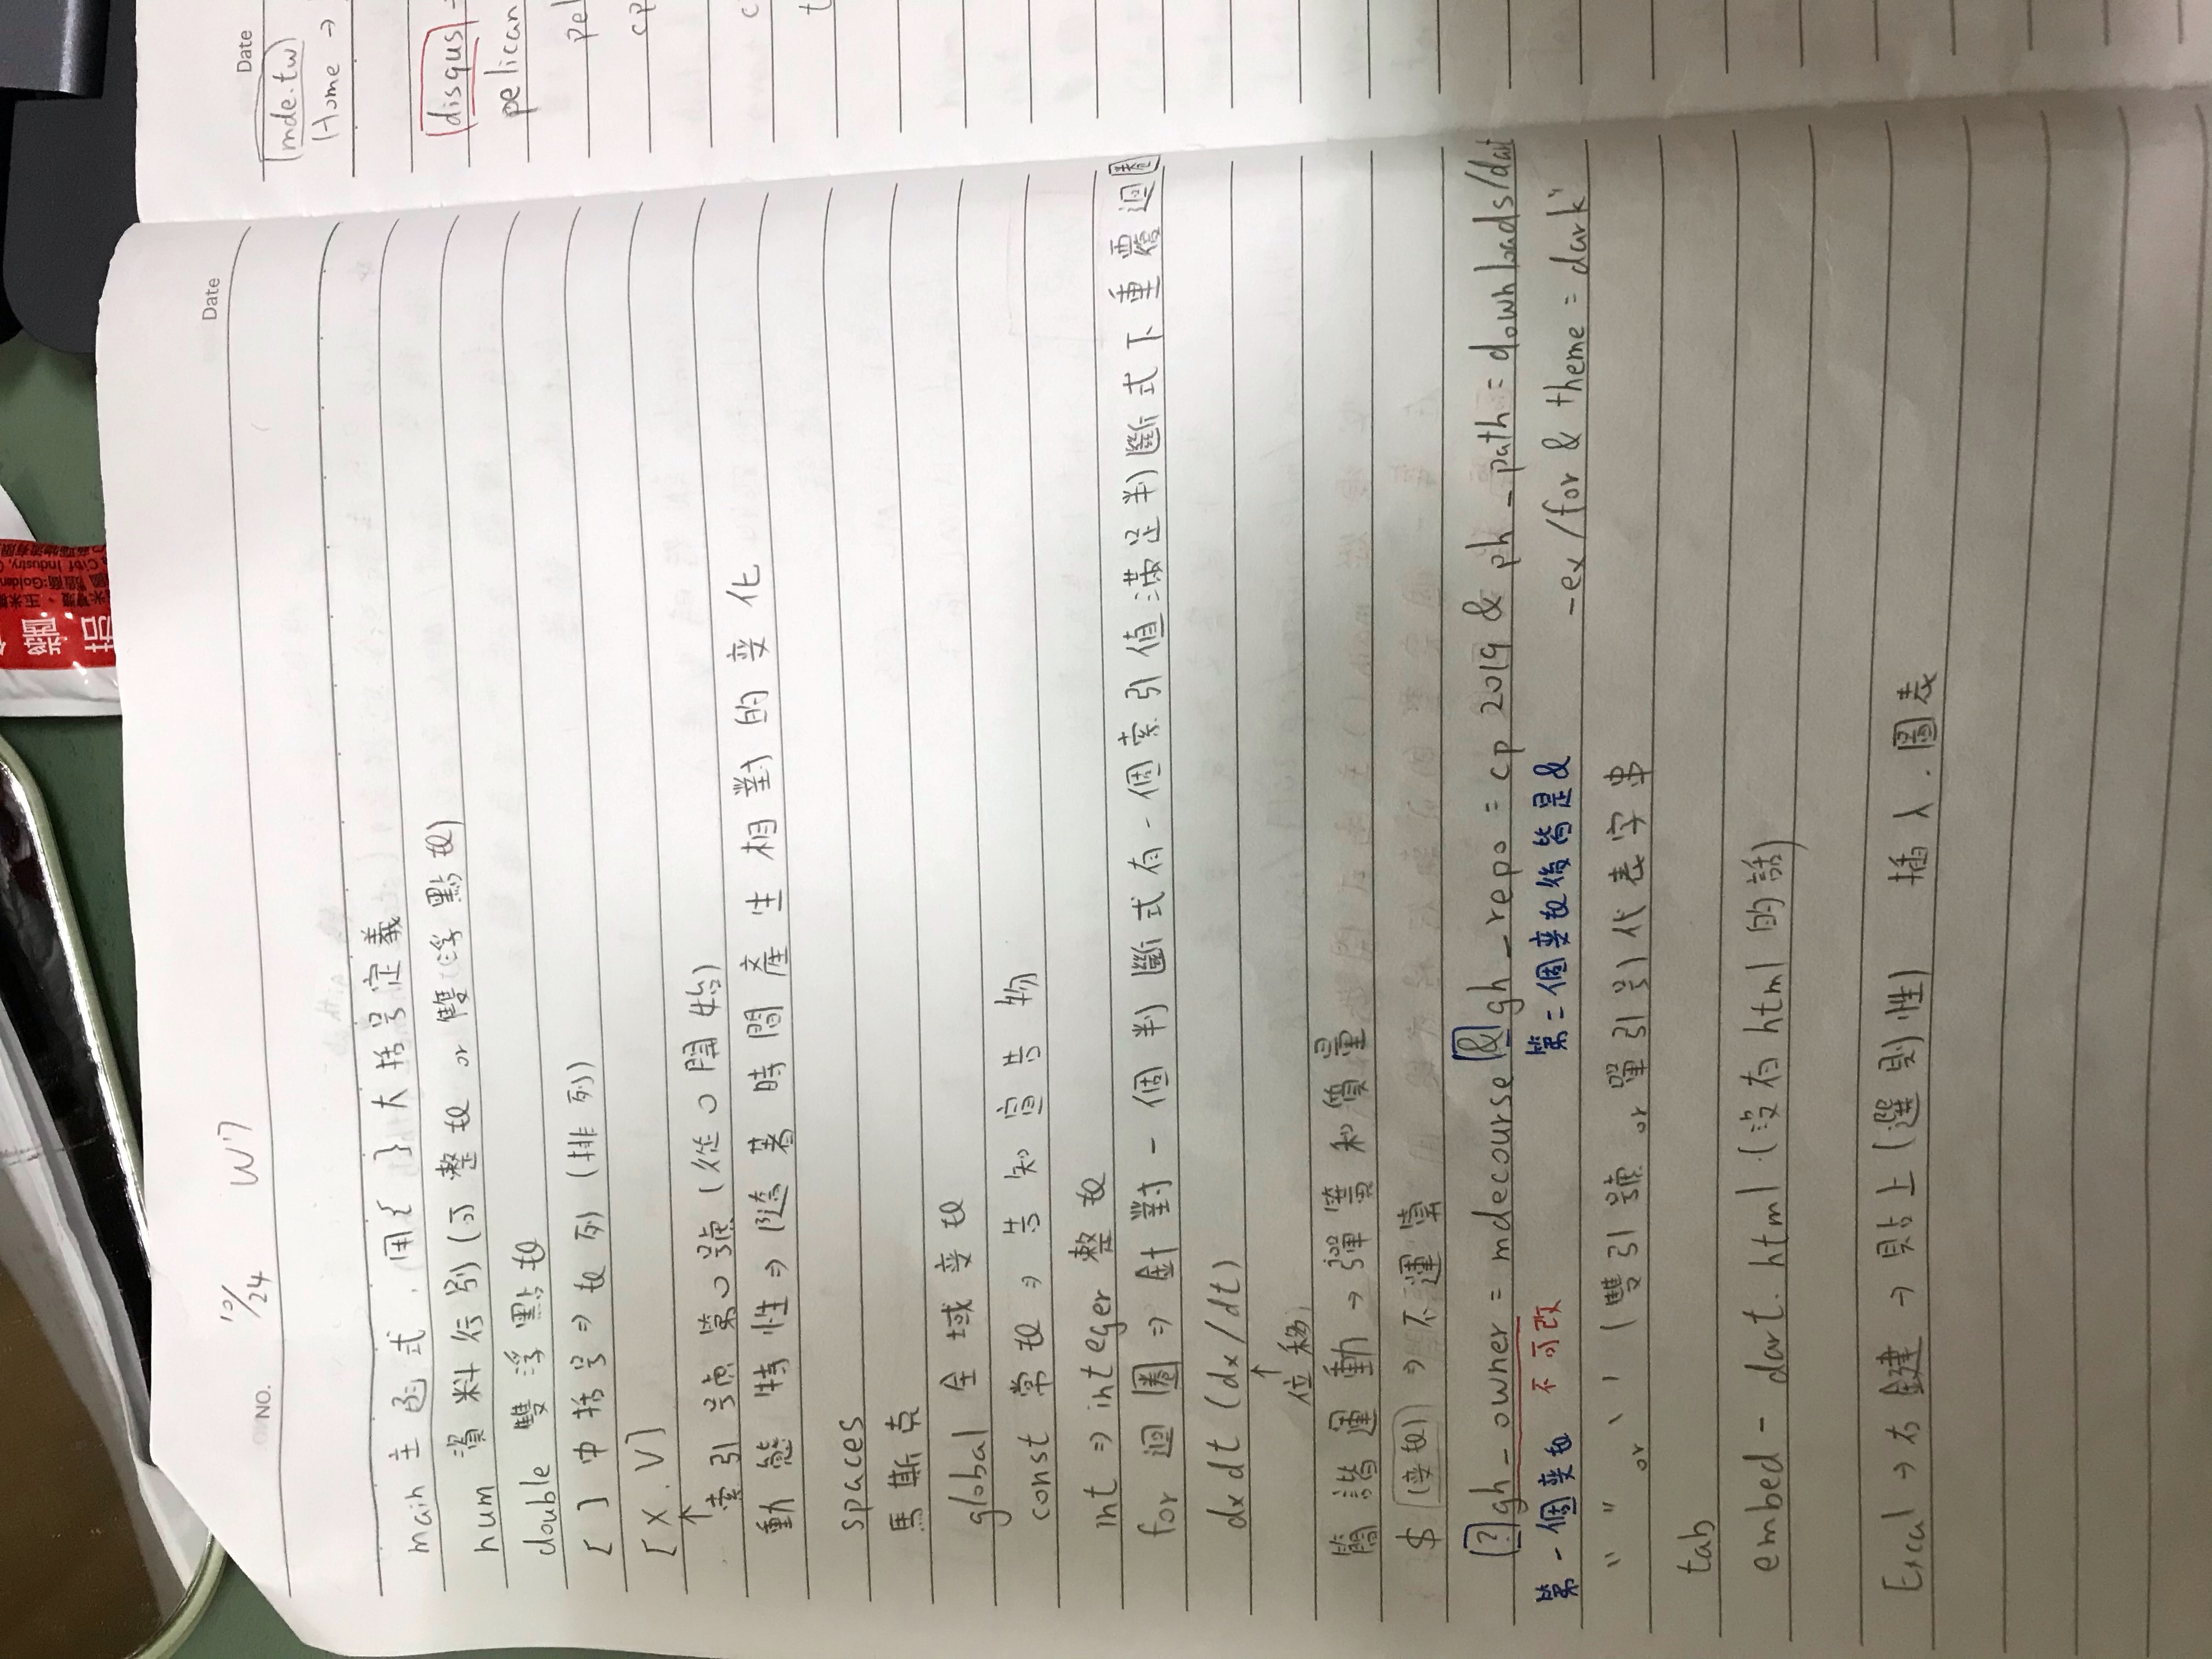 茄醬
NO. 10/24 W7 Date
main 主函式,用{ }大括号定義
num 資料行別(可整数 or 雙浮點数)
double 雙浮點数
[ ] 中括号⇒数列(排列)
[X,V]
↑
索引號第0號(從0開始)
動態特性⇒隨著時間產生相對的变化
spaces
馬斯克
global 全域变数
const 常数⇒告知宣告物
int ⇒ integer 整数
for 迴圈⇒針對一個判斷式有一個索引值滿足判斷式下重覆迴圈
dx dt (dx/dt)
↑
位移
簡諧運動→彈簧和質量
$ (变数) ⇒ 不運算
?gh_owner = mdecourse & gh_repo = cp 2019 & ph_path = downloads/dart
第一個变数 不可改 第二個变数後皆是& -ex/for & theme = dark"
" " or ' ' (雙引號 or 單引号)代表字串
tab
embed - dart. html (沒有 html 的話)
Excal → 右鍵 → 貼上(選則性) 插入.圖表
Date
mde.tw
Home →
disqus
pelican
pel
cp
c
t